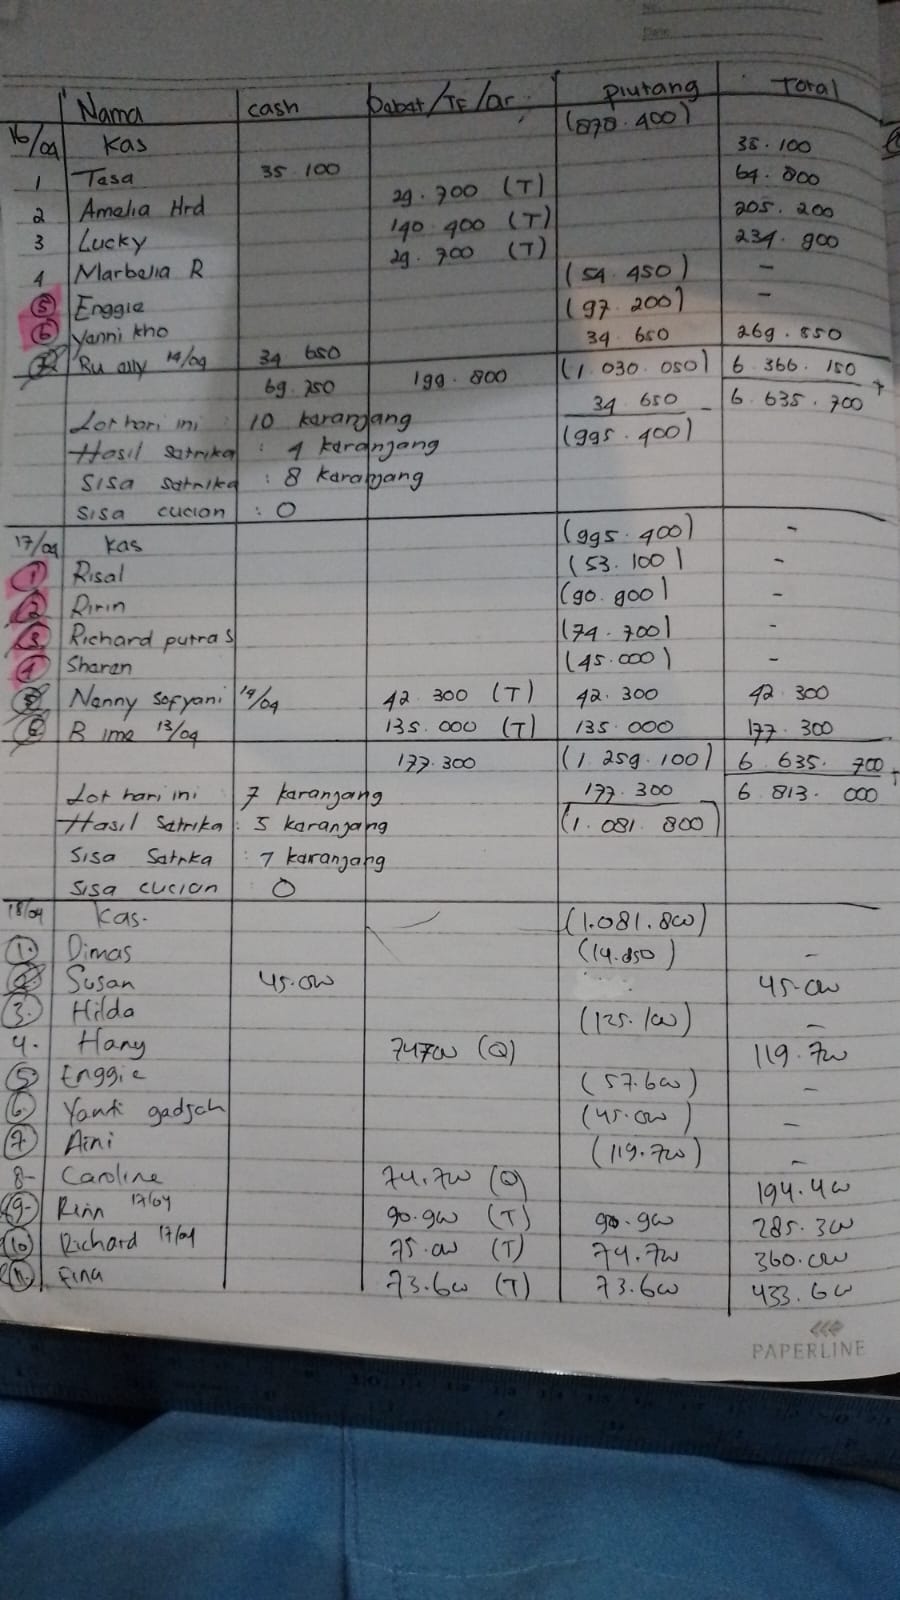 No.
Date
Nama cash Debet/TF/Qr piutang Total
16/04 Kas (878.400)
1 Tasa 35.100 35.100
2 Amelia Hrd 29.700 (T) 64.800
3 Lucky 140.400 (T) 205.200
4 Marbelia R 29.700 (T) 234.900
5 Enggie (54.450) -
6 Yanni kho (97.200) -
7 Bu ally 14/04 34 650 34 650 269.550
69.750 199.800 (1.030.050) 6.366.150 +
34.650 - 6.635.700
Lot hari ini : 10 karanjang (995.400)
Hasil Satrika : 4 karanjang
Sisa Satrika : 8 karanjang
Sisa cucian : 0
17/04 Kas (995.400) -
1 Risal (53.100) -
2 Ririn (90.900) -
3 Richard putra S (74.700) -
4 Sharen (45.000) -
5 Nanny Sofyani 14/04 42.300 (T) 42.300 42.300
6 B ime 13/04 135.000 (T) 135.000 177.300
177.300 (1.259.100) 6.635.700 +
Lot hari ini 7 karanjang 177.300 6.813.000
Hasil Satrika : 5 karanjang (1.081.800)
Sisa Satrka : 7 karanjang
Sisa cucian : 0
18/04 Kas. (1.081.800)
1. Dimas (14.850) -
2. Susan 45.000 45.000
3. Hilda (125.100) -
4. Hany 74700 (Q) 119.700
5. Enggie (57.600) -
6. Yanti gadjah (45.000) -
7. Aini (119.700) -
8- Caroline 74.700 (Q) 194.400
9- Ririn 17/04 90.900 (T) 90.900 285.300
10 Richard 17/04 75.000 (T) 74.700 360.000
11. Fina 73.600 (T) 73.600 433.600
PAPERLINE